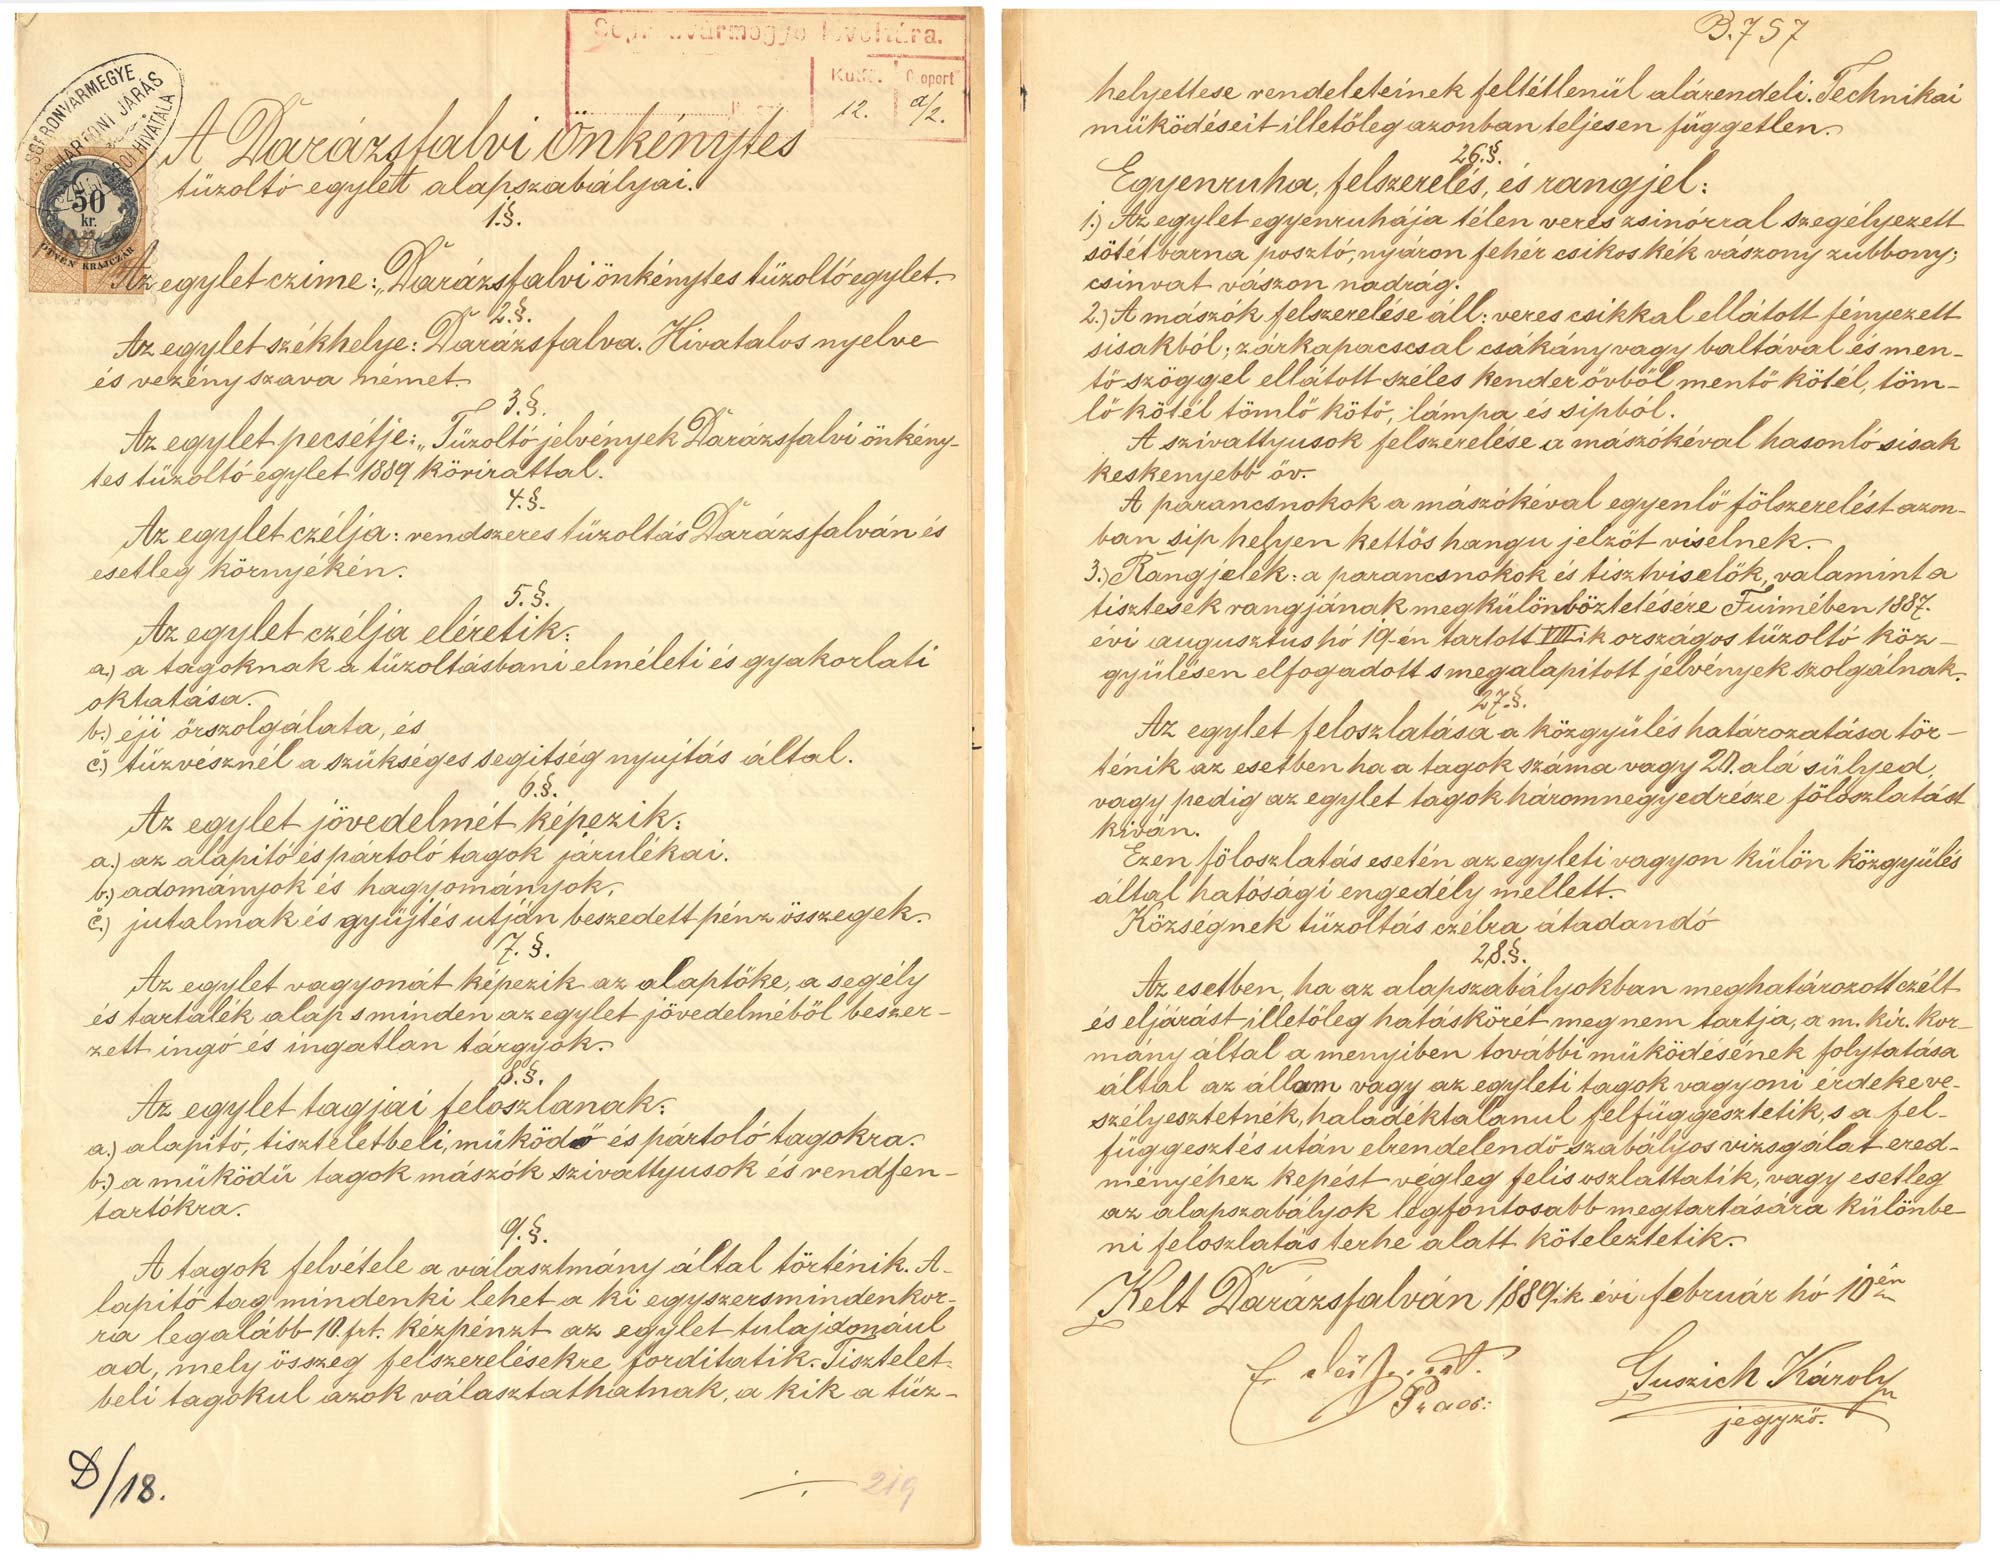 Sopronvármegye levéltára.
Kútfő. Csoport
12. a/2.
SOPRONVÁRMEGYE
NAGYMARTONI JÁRÁS
HIVATALA
50
kr.
ÖTVEN KRAJCZÁR
A Darázsfalvi Önkénytes
tüzoltó egylet alapszabályai.
1.§.
Az egylet czime: „Darázsfalvi önkénytes tüzoltó egylet.
2.§.
Az egylet székhelye: Darázsfalva. Hivatalos nyelve
és vezényszava német.
3.§.
Az egylet pecsétje: „Tüzoltó jelvények Darázsfalvi önkény-
tes tüzoltó egylet 1889 körirattal.
4.§.
Az egylet czélja: rendszeres tüzoltás Darázsfalván és
esetleg környékén.
5.§.
Az egylet czélja eléretik:
a.) a tagoknak a tüzoltásbani elméleti és gyakorlati
oktatása.
b.) éji őrszolgálata, és
c.) tüzvésznél a szükséges segitség nyujtás által.
6.§.
Az egylet jövedelmét képezik:
a.) az alapitó és pártoló tagok járulékai.
b.) adományok és hagyományok,
c.) jutalmak és gyüjtés utján beszedett pénz összegek.
7.§.
Az egylet vagyonát képezik az alaptőke, a segély
és tartalék alap s minden az egylet jövedelméből beszer-
zett ingó és ingatlan tárgyok.
8.§.
Az egylet tagjai feloszlanak:
a.) alapitó, tiszteletbeli, müködő és pártoló tagokra.
b.) a müködü tagok mászók szivattyusok és rendfen-
tartókra.
9.§.
A tagok felvétele a választmány által történik. A-
lapitó tag mindenki lehet a ki egyszersmindenkor-
ra legalább 10 frt. kézpénzt az egylet tulajdonául
ad, mely összeg felszerelésekre forditatik. Tisztelet-
beli tagokul azok választathatnak, a kik a tüz-
D/18.
219
B.757
helyettese rendeleteinek feltétlenül alárendeli. Technikai
müködéseit illetőleg azonban teljesen független.
26.§.
Egyenruha, felszerelés, és rangjel:
1.) Az egylet egyenruhája télen veres zsinórral szegélyezett
sötétbarna posztó, nyáron fehér csikos kék vászony zubbony;
csinvat vászon nadrág.
2.) A mászók felszerelése áll: veres csikkal ellátott fényezett
sisakból; zárkapacscsal csákány vagy baltával és men-
tő szöggel ellátott széles kender övből mentő kötél, töm-
lő kötél tömlő kötő, lámpa és sipból.
A szivattyusok felszerelése a mászókéval hasonló sisak
keskenyebb öv.
A parancsnokok a mászókéval egyenlő fölszerelést azon-
ban sip helyen kettős hangu jelzőt viselnek.
3.) Rangjelek: a parancsnokok és tisztviselők, valamint a
tisztesek rangjának megkülönböztetésére Fuimében 1887.
évi augusztus hó 19-én tartott VIII-ik országos tüzoltó köz-
gyülésen elfogadott s megalapitott jelvények szolgálnak.
27.§.
Az egylet feloszlatása a közgyülés határozatása tör-
ténik az esetben ha a tagok száma vagy 20. alá sülyed,
vagy pedig az egylet tagok háromnegyedrésze föloszlatást
kiván.
Ezen föloszlatás esetén az egyleti vagyon külön közgyülés
által hatósági engedély mellett.
Községnek tüzoltás czélra átadandó
28.§.
Az esetben, ha az alapszabályokban meghatározott czélt
és eljárást illetőleg hatáskörét meg nem tartja, a m. kir. kor-
mány által a menyiben további müködésének folytatása
által az állam vagy az egyleti tagok vagyoni érdeke ve-
szélyesztetnék, haladéktalanul felfüggesztetik, s a fel-
függesztés után elrendelendő szabályos vizsgálat ered-
ményéhez képést végleg fel is oszlattatik, vagy esetleg
az alapszabályok légfontosabb megtartására különbe-
ni feloszlatás terhe alatt köteleztetik.
Kelt Darázsfalván 1889-ik évi február hó 10én
Guszich Károly
jegyző.